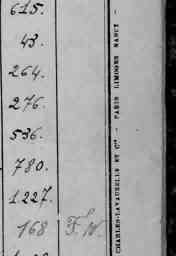 615.
43.
264.
276.
536.
780.
1227.
168 F. N.
CHARLES-LAVAUZELLE ET Cie — PARIS LIMOGES NANCY —